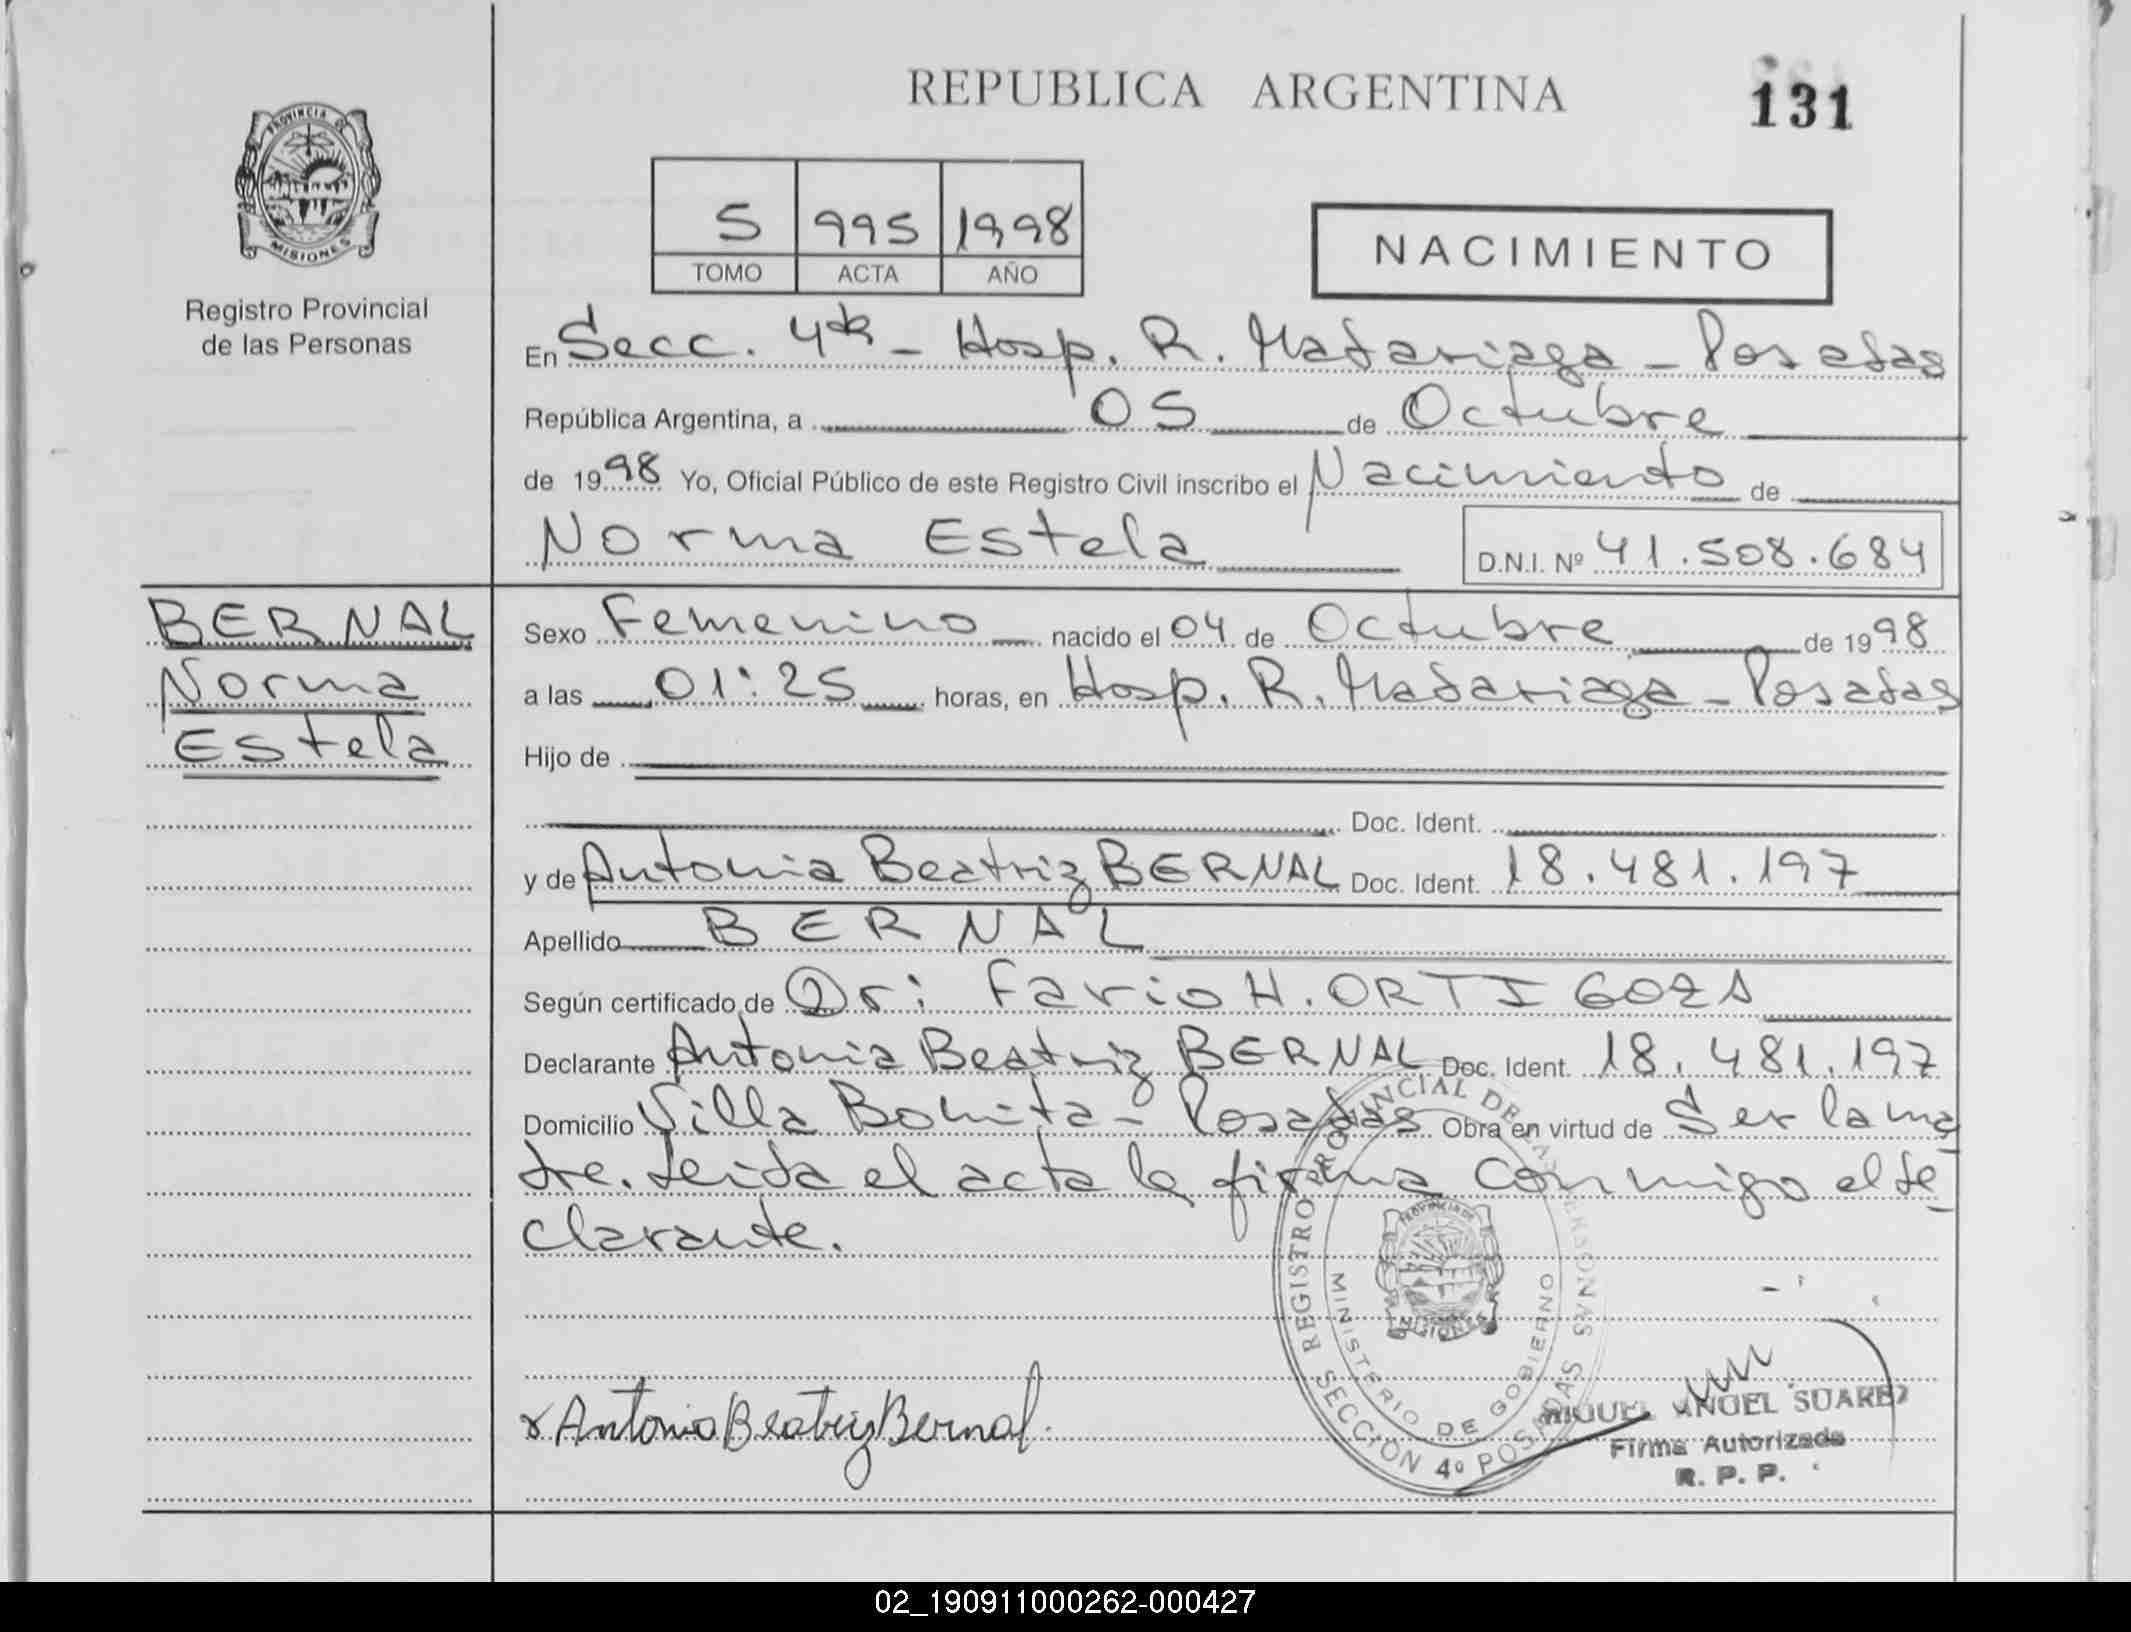 REPUBLICA ARGENTINA
131
PROVINCIA DE
MISIONES
Registro Provincial
de las Personas
5 995 1998
TOMO ACTA AÑO
NACIMIENTO
En Secc. 4ta - Hosp. R. Madariaga - Posadas
República Argentina, a 05 de Octubre
de 1998 Yo, Oficial Público de este Registro Civil inscribo el Nacimiento de
Norma Estela D.N.I. Nº 41.508.684
BERNAL
Norma
Estela
Sexo Femenino nacido el 04 de Octubre de 1998
a las 01:25 horas, en Hosp. R. Madariaga - Posadas
Hijo de
Doc. Ident.
y de Antonia Beatriz BERNAL Doc. Ident. 18.481.197
Apellido BERNAL
Según certificado de Dr: Fario H. ORTIGOZA
Declarante Antonia Beatriz BERNAL Doc. Ident. 18.481.197
Domicilio Villa Bonita - Posadas Obra en virtud de Ser la ma
dre. Leida el acta la firma conmigo el de
clarante.
REGISTRO PROVINCIAL DE LAS PERSONAS
SECCION 4º POSADAS
MINISTERIO DE GOBIERNO
PROVINCIA DE
MISIONES
x Antonia Beatriz Bernal.
MIGUEL ANGEL SUAREZ
Firma Autorizada
R. P. P.
02_190911000262-000427